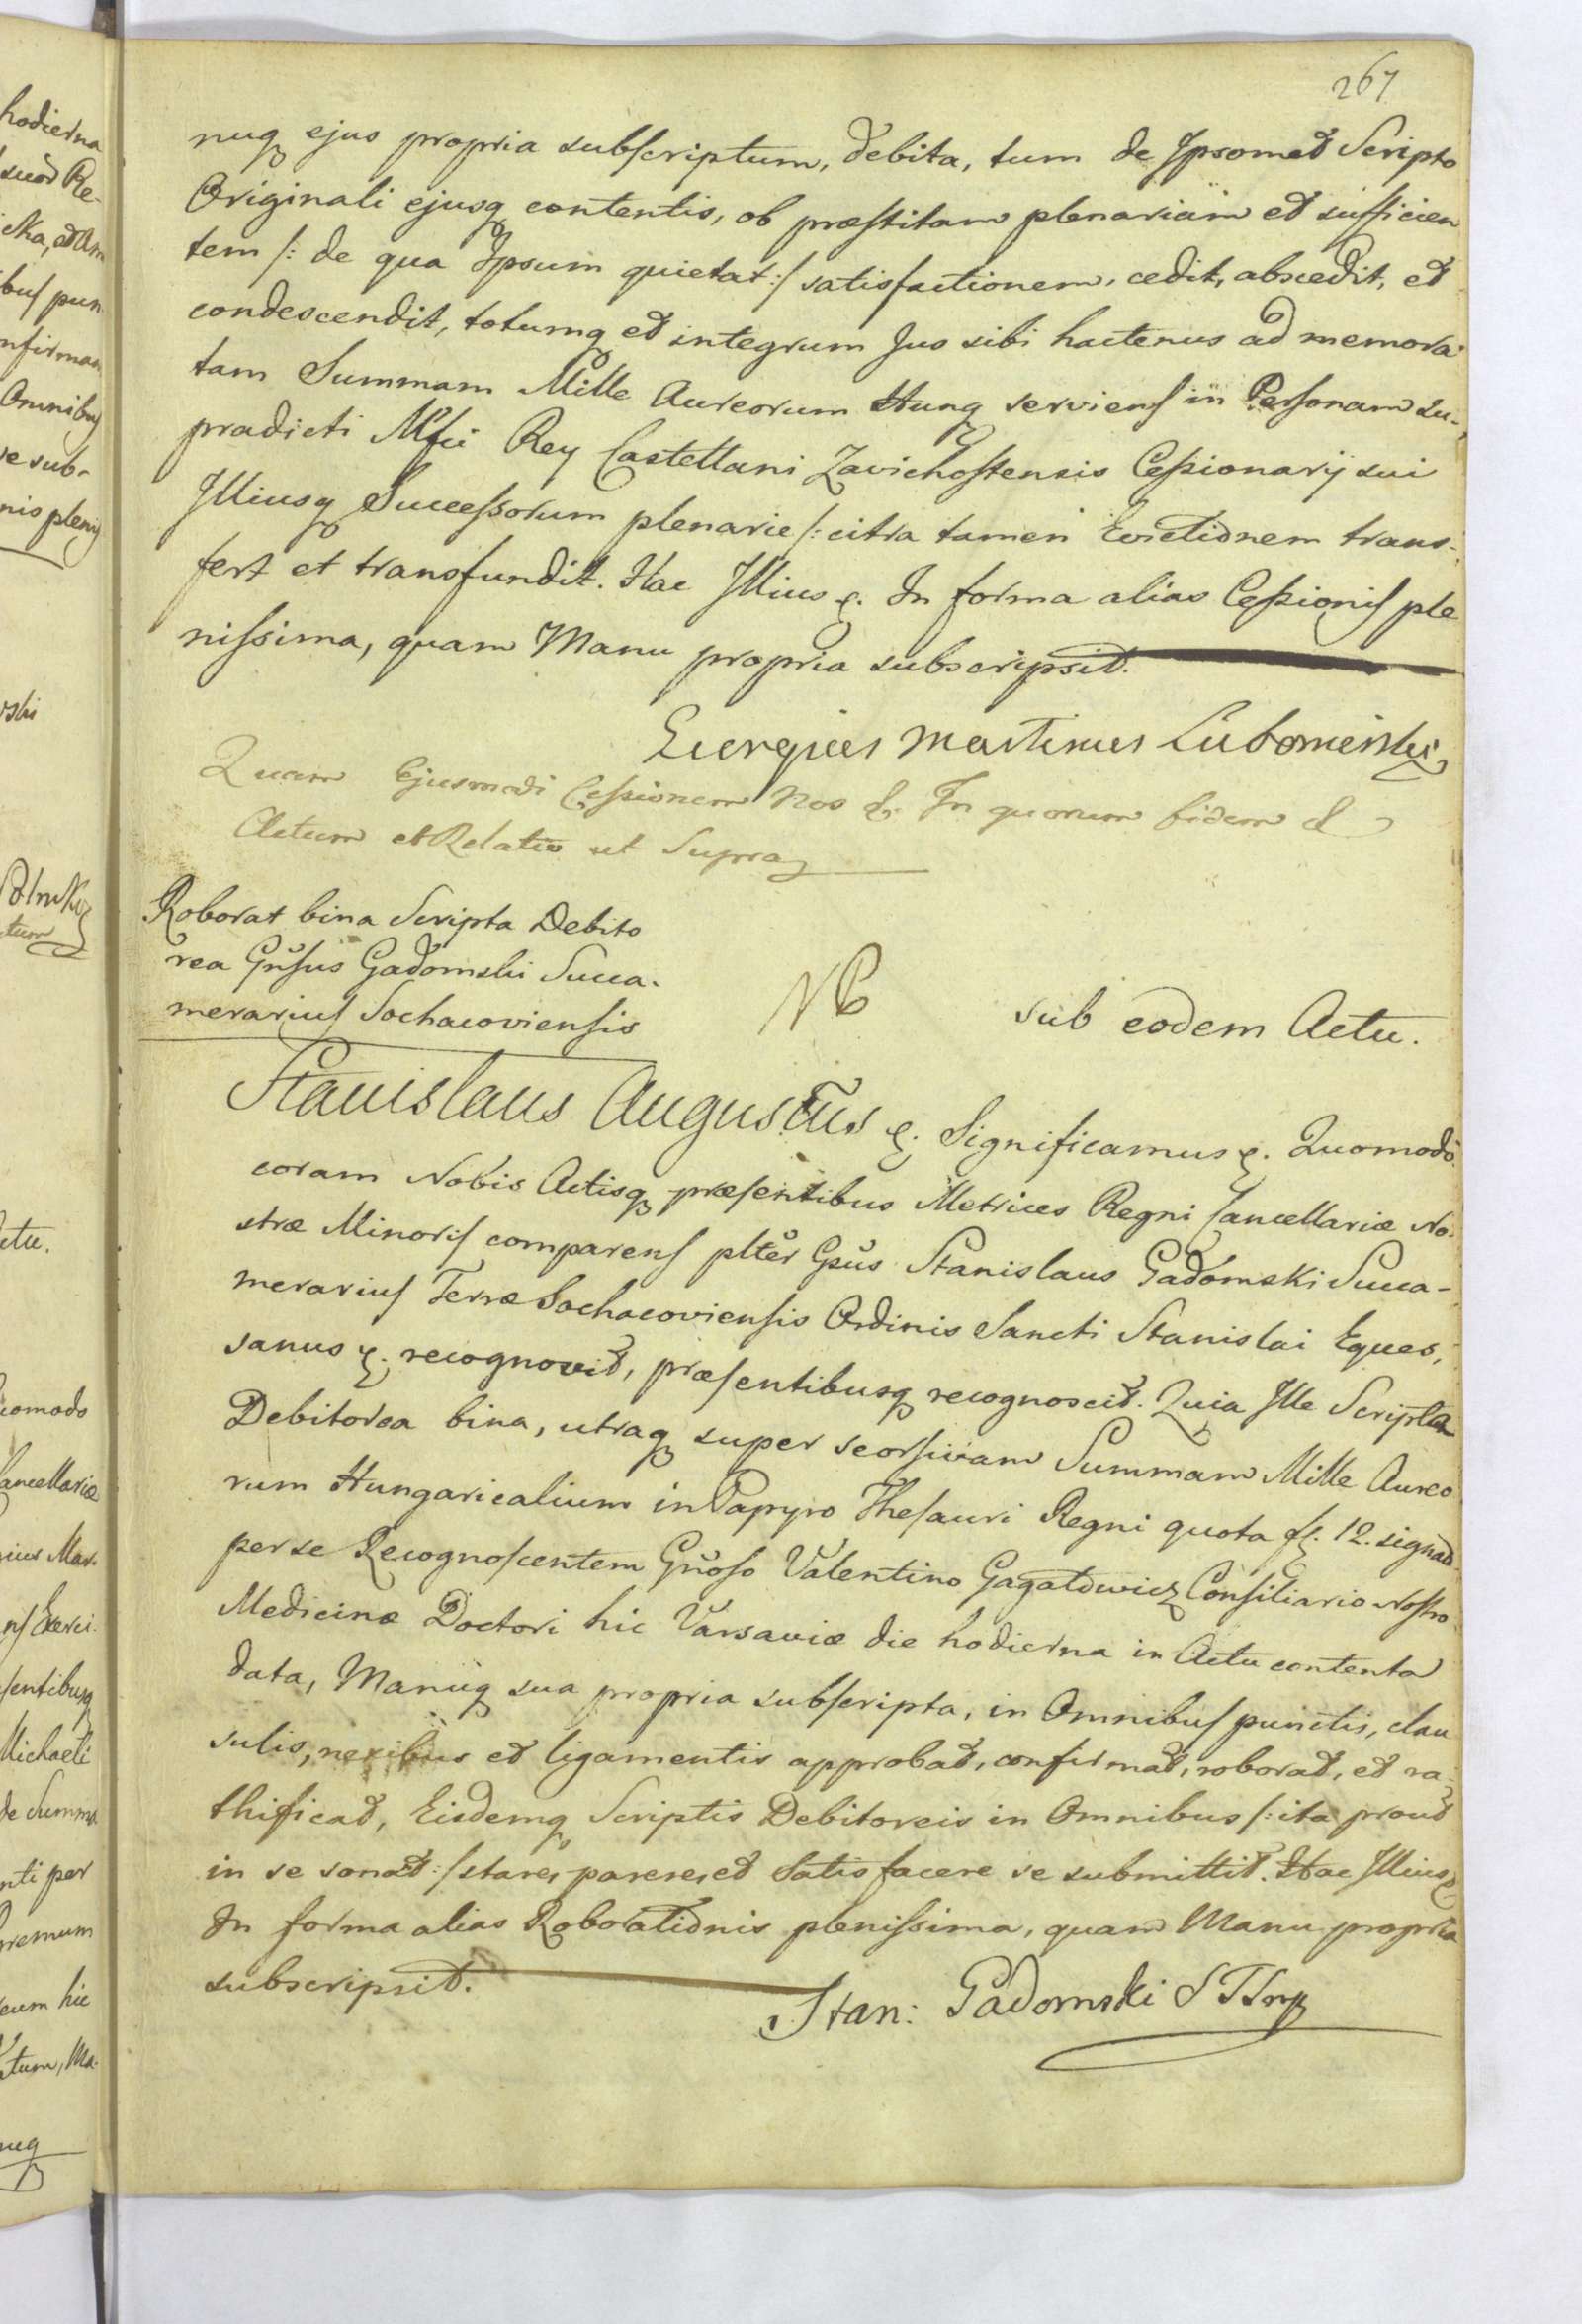 267
nuq ejus propria subscriptum, debita, tum de Ipsomet Scripto
Originali ejusq contentis, ob præstitam plenariam et sufficien
tem /: de qua Ipsum quietat :/ satisfactionem, cedit, abscedit, et
condescendit, totumq et integrum Jus sibi hactenus ad memora
tam Summam Mille Aureorum Hung serviens in Personam su-
pradicti Mfci Rey Castellani Zavichostensis Cessionarij sui
Illiusq Successorum plenarie /: citra tamen Evictionem trans-
fert et transfundit. Hac Illius &. In forma alias Cessionis ple
nissima, quam Manu propria subscripsit.
Georgius Martinus Lubomirski
Quam Ejusmodi Cessionem Nos &. In quorum fidem &
Actum et Relatio ut Supra
Roborat bina Scripta Debito
rea Gnsus Gadomski Succa-
merarius Sochacoviensis
NB
sub eodem Actu.
Stanislaus Augustus &. Significamus &. Quomodo
coram Nobis Actisq præsentibus Metrices Regni Cancellariæ No-
stræ Minoris comparens plter Gsus Stanislaus Gadomski Succa-
merarius Terræ Sochacoviensis Ordinis Sancti Stanislai Eques,
sanus &. recognovit, præsentibusq recognoscit. Quia Ille Scripta
Debitorea bina, utraq super seorsivam Summam Mille Aureo
rum Hungaricalium in Papyro Thesauri Regni quota fl. 12. signat
per se Recognoscentem Gnoso Valentino Gagatowicz Consiliario Nostro
Medicinæ Doctori hic Varsaviæ die hodierna in Actu contenta
data, Manuq sua propria subscripta, in Omnibus punctis, clau
sulis, nexibus et ligamentis approbat, confirmat, roborat, et ra-
thificat, Eisdemq Scriptis Debitoreis in Omnibus /: ita prout
in se sonat :/ stare, parere, et Satisfacere se submittit. Hac Illius &
In forma alias Roborationis plenissima, quam Manu propria
subscripsit.
Stan: Gadomski